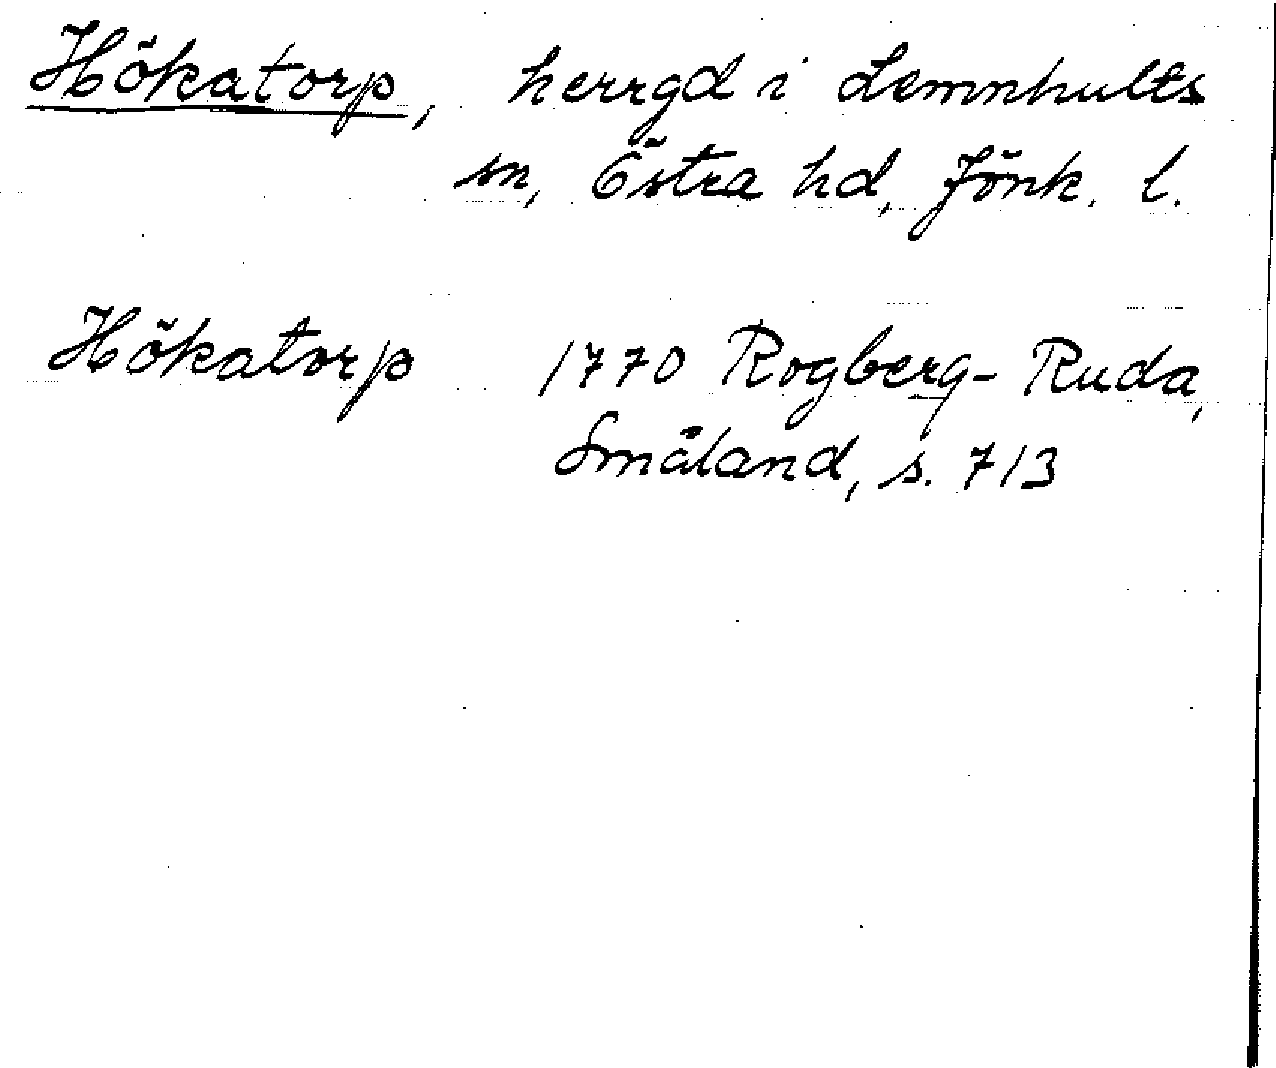 Hökatorp, herrgd i Lemnhults
sn, Östra hd, Jönk. l.
Hökatorp 1770 Rogberg-Ruda,
Småland, s. 713